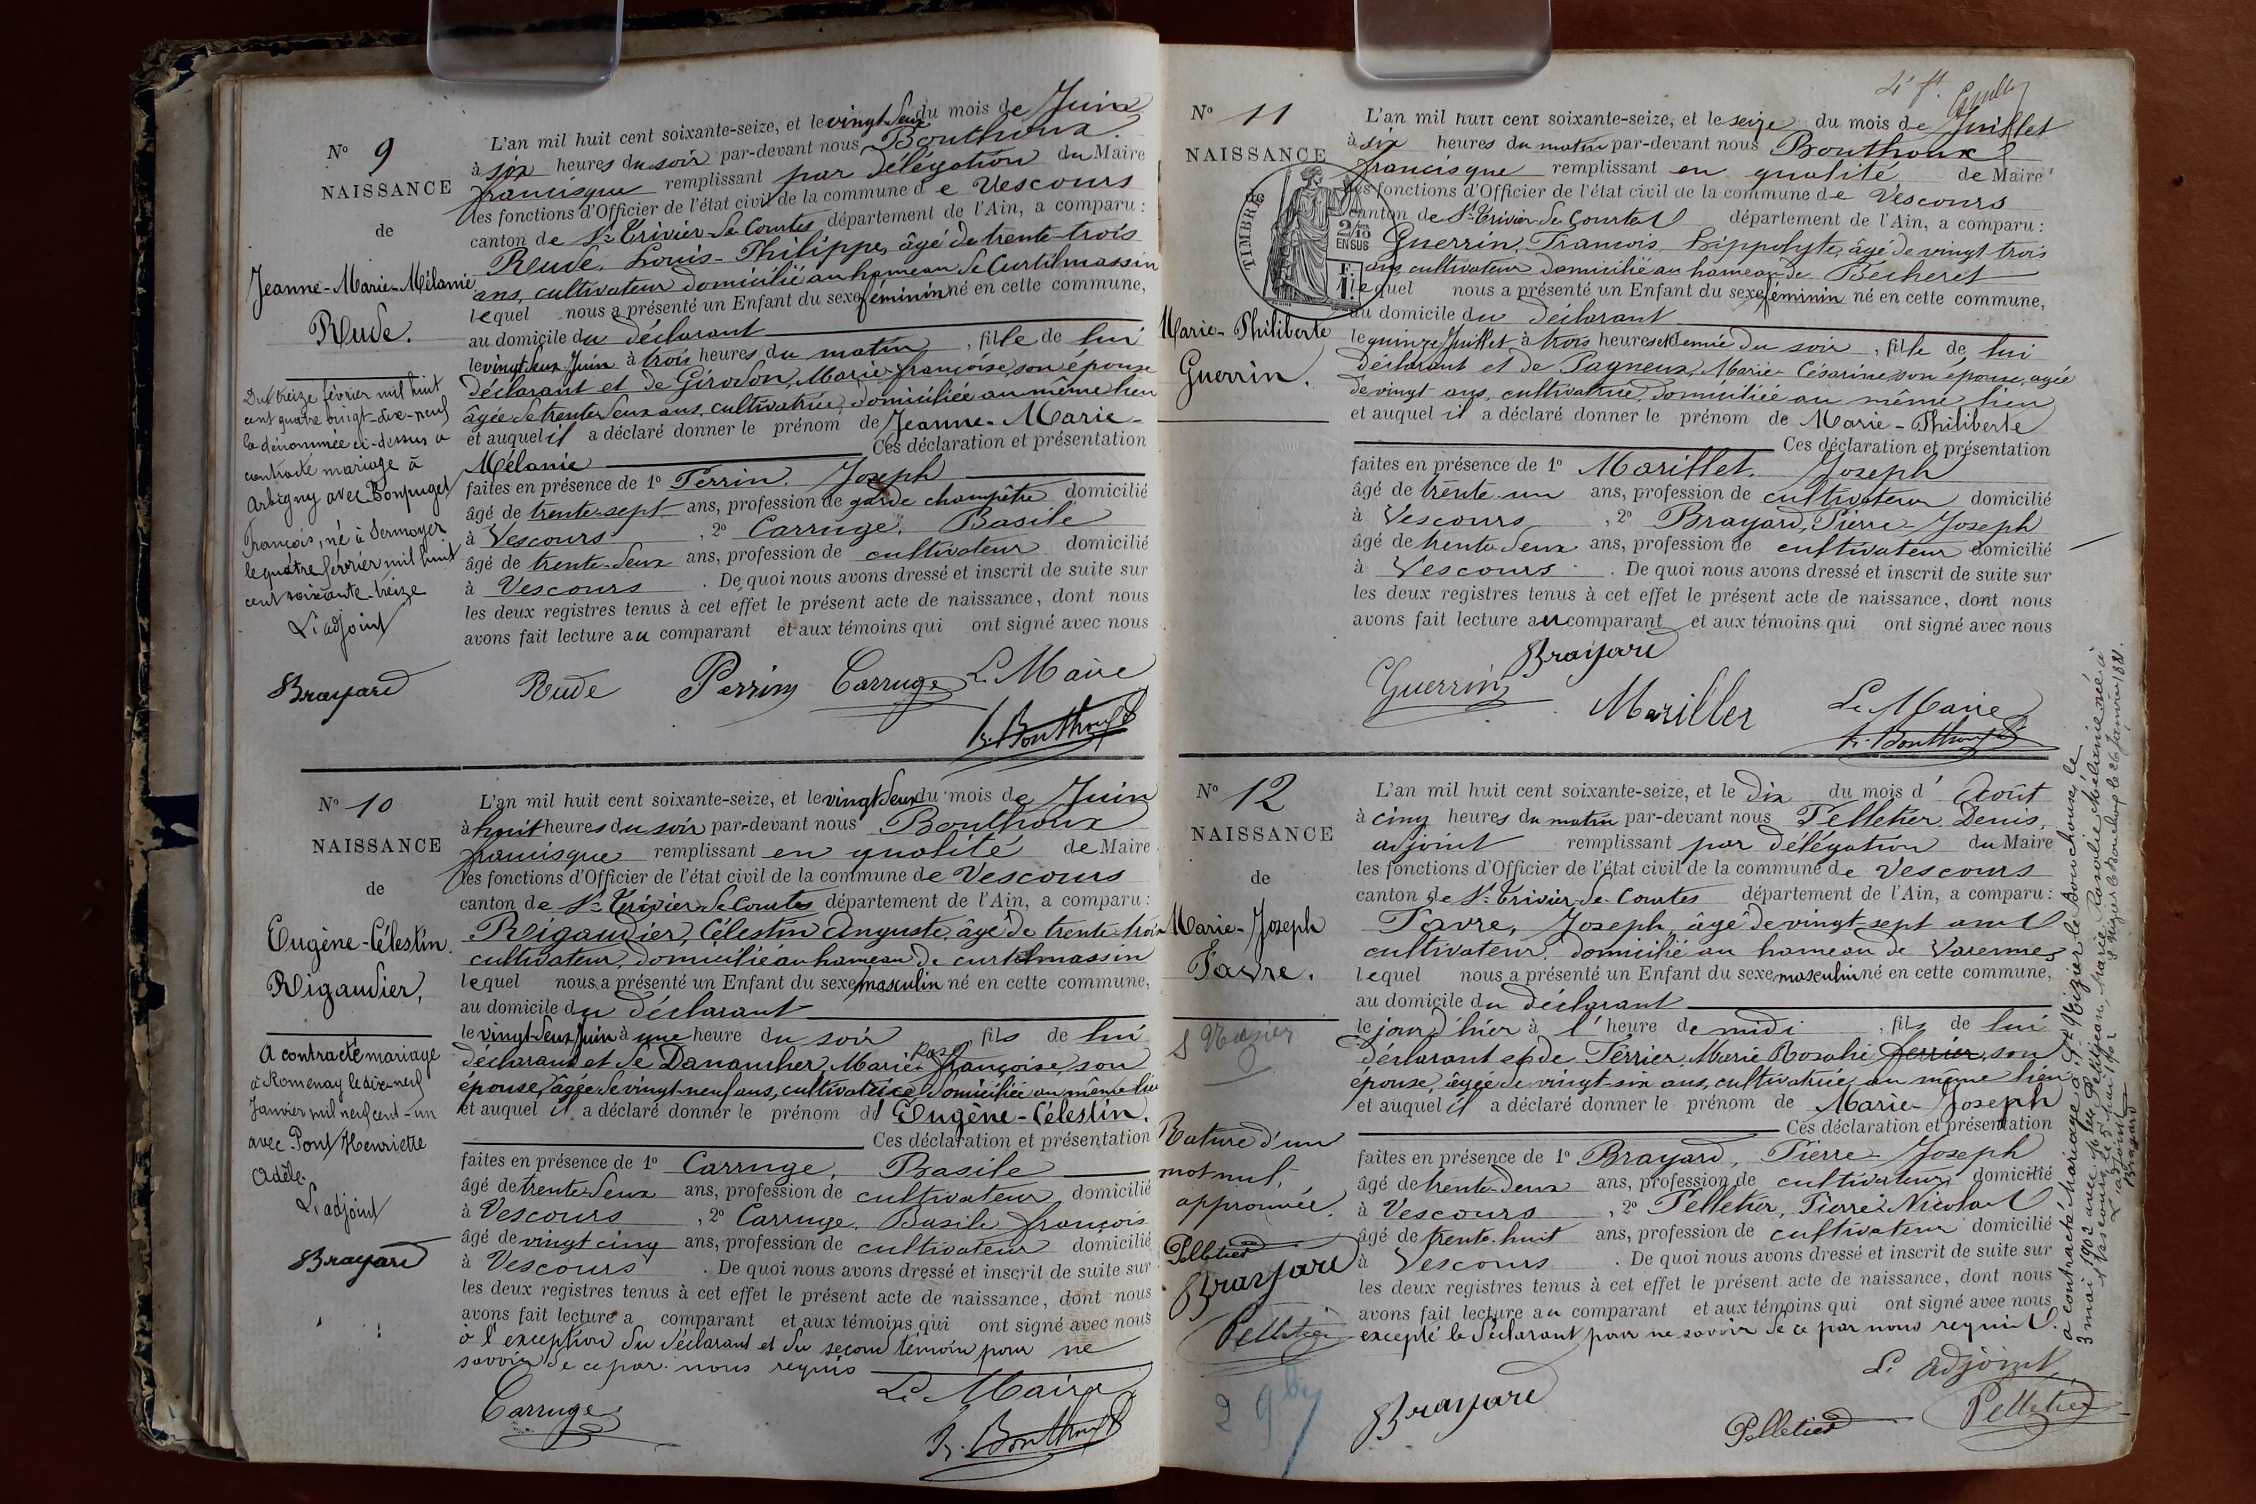 N° 9
NAISSANCE
de
Jeanne-Marie-Mélanie
Rude.
Du treize février mil huit
cent quatre vingt-dix-neuf
la dénommée ci-dessus a
contracté mariage à
Arbigny avec
François, né à Sermoyer
le quatre février mil huit
cent soixante-treize
L'adjoint
Brayard
L'an mil huit cent soixante-seize, et le vingt deux du mois de Juin
à six heures du soir par-devant nous Bouthoux
francisque remplissant par délégation du Maire
les fonctions d'Officier de l'état civil de la commune de Vescours
canton de St Trivier-de Courtes département de l'Ain, a comparu :
Rude, Louis-Philippe, âgé de trente-trois
ans, cultivateur domicilié au hameau de Curtilmassin
lequel nous a présenté un Enfant du sexe féminin né en cette commune,
au domicile du déclarant
le vingt deux Juin à trois heures du matin, fille de lui
déclarant et de Girodon, Marie françoise, son épouse
âgée de trente deux ans, cultivatrice, domiciliée au même lieu
et auquel il a déclaré donner le prénom de Jeanne-Marie-
Mélanie Ces déclaration et présentation
faites en présence de 1° Perrin, Joseph
âgé de trente-sept ans, profession de garde champêtre domicilié
à Vescours, 2° Carruge, Basile
âgé de trente-deux ans, profession de cultivateur domicilié
à Vescours. De quoi nous avons dressé et inscrit de suite sur
les deux registres tenus à cet effet le présent acte de naissance, dont nous
avons fait lecture au comparant et aux témoins qui ont signé avec nous
Rude Perrin Carruge Le Maire
fr. Bouthoux
N° 10
NAISSANCE
de
Eugène-Célestin.
Rigaudier,
A contracté mariage
à Romenay le dix-neuf
Janvier mil neuf cent-un
avec Pont Henriette
Adèle.
L'adjoint
Brayard
L'an mil huit cent soixante-seize, et le vingt deux du mois de Juin
à huit heures du soir par-devant nous Bouthoux
francisque remplissant en qualité de Maire
les fonctions d'Officier de l'état civil de la commune de Vescours
canton de St Trivier-de Courtes département de l'Ain, a comparu :
Rigaudier, Célestin Auguste, âgé de trente-trois
cultivateur, domicilié au hameau de curtilmassin
lequel nous a présenté un Enfant du sexe masculin né en cette commune,
au domicile du déclarant
le vingt deux Juin à une heure du soir fils de lui
déclarant et de Danancher, Marie françoise, son
épouse, âgée de vingt-neuf ans, cultivatrice domiciliée au même lieu
et auquel il a déclaré donner le prénom d' Eugène-Célestin.
Ces déclaration et présentation
faites en présence de 1° Carruge, Basile
âgé de trente-deux ans, profession de cultivateur domicilié
à Vescours, 2° Carruge, Basile françois
âgé de vingt cinq ans, profession de cultivateur domicilié
à Vescours. De quoi nous avons dressé et inscrit de suite sur
les deux registres tenus à cet effet le présent acte de naissance, dont nous
avons fait lecture a comparant et aux témoins qui ont signé avec nous
à l'exception du déclarant et du second témoin pour ne
savoir de ce par nous requis
Carruge Le Maire
fr. Bouthoux
N° 11
NAISSANCE
TIMBRE
2/10
EN SUS
Marie-Philiberte
Guerrin.
L'an mil huit cent soixante-seize, et le seize du mois de Juillet
à six heures du matin par-devant nous Bouthoux
francisque remplissant en qualité de Maire
les fonctions d'Officier de l'état civil de la commune de Vescours
canton de St Trivier-de Courtes département de l'Ain, a comparu :
Guerrin, Francois Hippolyte, âgé de vingt trois
ans, cultivateur domicilié au hameau de Bécheret
lequel nous a présenté un Enfant du sexe féminin né en cette commune,
au domicile du déclarant
le quinze Juillet à trois heures et demie du soir, fille de lui
déclarant et de Pagneux, Marie Césarine, son épouse, agée
de vingt ans, cultivatrice, domiciliée au même lieu
et auquel il a déclaré donner le prénom de Marie-Philiberte
Ces déclaration et présentation
faites en présence de 1° Marillet, Joseph
âgé de trente-un ans, profession de cultivateur domicilié
à Vescours, 2° Brayard, Pierre-Joseph
âgé de trente-deux ans, profession de cultivateur domicilié
à Vescours. De quoi nous avons dressé et inscrit de suite sur
les deux registres tenus à cet effet le présent acte de naissance, dont nous
avons fait lecture au comparant et aux témoins qui ont signé avec nous
Brayard
Guerrin Mariller Le Maire
fr. Bouthoux
N° 12
NAISSANCE
de
Marie-Joseph
Favre.
Rature d'un
mot nul,
approuvée.
Pelletier
Brayard
Pelletier
L'an mil huit cent soixante-seize, et le dix du mois d' Août
à cinq heures du matin par-devant nous Pelletier Denis,
adjoint remplissant par délégation du Maire
les fonctions d'Officier de l'état civil de la commune de Vescours
canton de St Trivier-de-Courtes département de l'Ain, a comparu :
Favre, Joseph, âgé de vingt-sept ans
cultivateur, domicilié au hameau de Varennes
lequel nous a présenté un Enfant du sexe masculin né en cette commune,
au domicile du déclarant
le jour d'hier à l'heure de midi, fils de lui
déclarant et de Ferrier, Marie Rosalie ferrier, son
épouse, âgée de vingt-six ans, cultivatrice, au même lieu
et auquel il a déclaré donner le prénom de Marie-Joseph
Ces déclaration et présentation
faites en présence de 1° Brayard, Pierre-Joseph
âgé de trente-deux ans, profession de cultivateur domicilié
à Vescours, 2° Pelletier, Pierre Nicolas
âgé de trente-huit ans, profession de cultivateur domicilié
à Vescours. De quoi nous avons dressé et inscrit de suite sur
les deux registres tenus à cet effet le présent acte de naissance, dont nous
avons fait lecture au comparant et aux témoins qui ont signé avec nous
excepté le déclarant pour ne savoir de ce par nous requis.
L'adjoint,
Brayard Pelletier Pelletier
a contracté mariage à St Nizier le Bouchoux, le
3 mai 1902 avec Petitjean, Marie Caroline mélanie née à
St Nizier le Bouchoux le 26 janvier 1881.
Vescours le 5 mai 1902
L'adjoint
Brayard